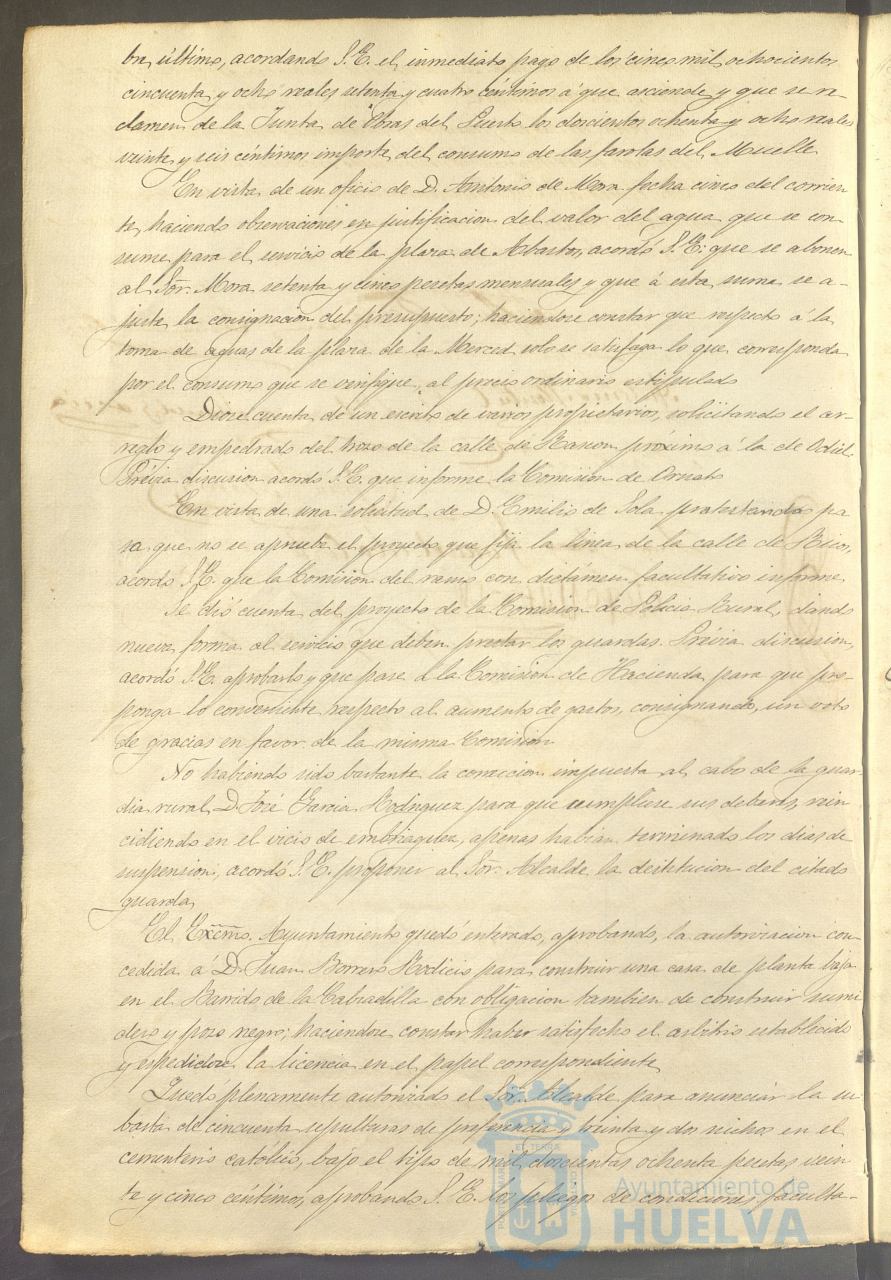 bre último, acordando S. E. el inmediato pago de los cinco mil ochocientos
cincuenta y ocho reales setenta y cuatro céntimos á que asciende y que se re
clamen de la Junta de Obras del Puerto los doscientos ochenta y ocho reales
veinte y seis céntimos importe del consumo de las farolas del Muelle
En vista de un oficio de D. Antonio de Mora fecha cinco del corrien
te, haciendo observaciones en justificacion del valor del agua que se con
sume para el servicio de la plaza de Abastos, acordó S. E. que se abonen
al Sor. Mora setenta y cinco pesetas mensuales y que á esta suma se a-
juste la consignacion del presupuesto; haciendose constar que respecto á la
toma de aguas de la plaza de la Merced solo se satisfaga lo que corresponda
por el consumo que se verifique, al precio ordinario estipulado
Diose cuenta de un escrito de varios propietarios, solicitando el ar-
reglo y empedrado del trozo de la calle de Rascon próximo á la de Odiel.
Prévia discusion acordó S. E. que informe la Comision de Ornato
En vista de una solicitud de D. Emilio de Sola protestando pa
ra que no se apruebe el proyecto que fija la línea de la calle de Ricos,
acordó S. E. que la Comision del ramo con dictámen facultativo informe
Se dió cuenta del proyecto de la Comision de Policía Rural, dando
nueva forma al servicio que deben prestar los guardas. Prévia discusion,
acordó S. E. aprobarlo y que pase á la Comision de Hacienda para que pro-
ponga lo conveniente respecto al aumento de gastos, consignando, un voto
de gracias en favor de la misma Comision
No habiendo sido bastante la correccion impuesta al cabo de la guar-
dia rural D. José Garcia Rodriguez para que cumpliese sus deberes, rein
cidiendo en el vicio de embriaguez, apenas habian terminado los dias de
suspension, acordó S. E. proponer al Sor. Alcalde la destitucion del citado
guarda
El Excmo. Ayuntamiento quedó enterado, aprobando, la autorizacion con-
cedida á D. Juan Borrero Rodicio para construir una casa de planta baja
en el Barrido de la Cabradilla con obligacion tambien de construir sumi
dero y pozo negro; haciendose constar haber satisfecho el arbitrio establecido
y espedidose la licencia en el papel correspondiente
Quedó plenamente autorizado el Sor. Alcalde para anunciar la su
basta de cincuenta sepulturas de preferencia y treinta y dos nichos en el
cementerio católico, bajo el tipo de mil doscientas ochenta pesetas vein
te y cinco céntimos, aprobando S. E. los pliegos de condiciones faculta-
Ayuntamiento de
HUELVA